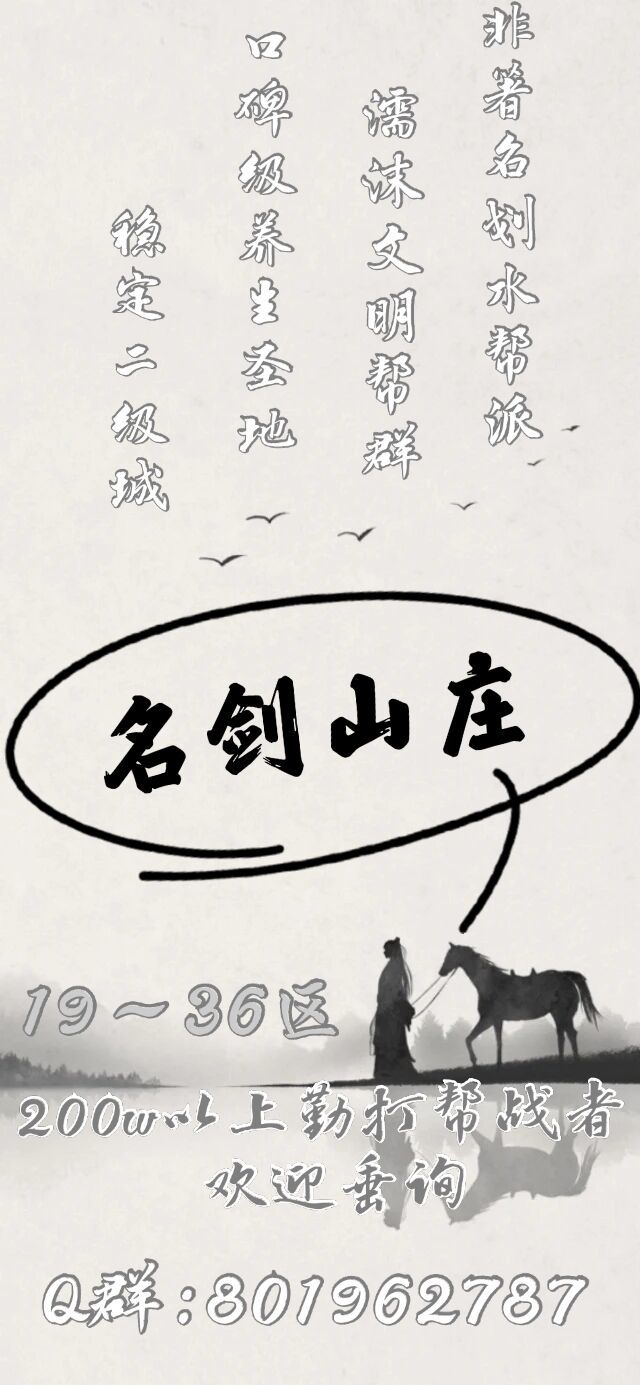 非著名划水帮派
濡沫文明帮群
口碑级养生圣地
稳定二级城
名剑山庄
19～36区
200w以上勤打帮战者
欢迎垂询
Q群:801962787